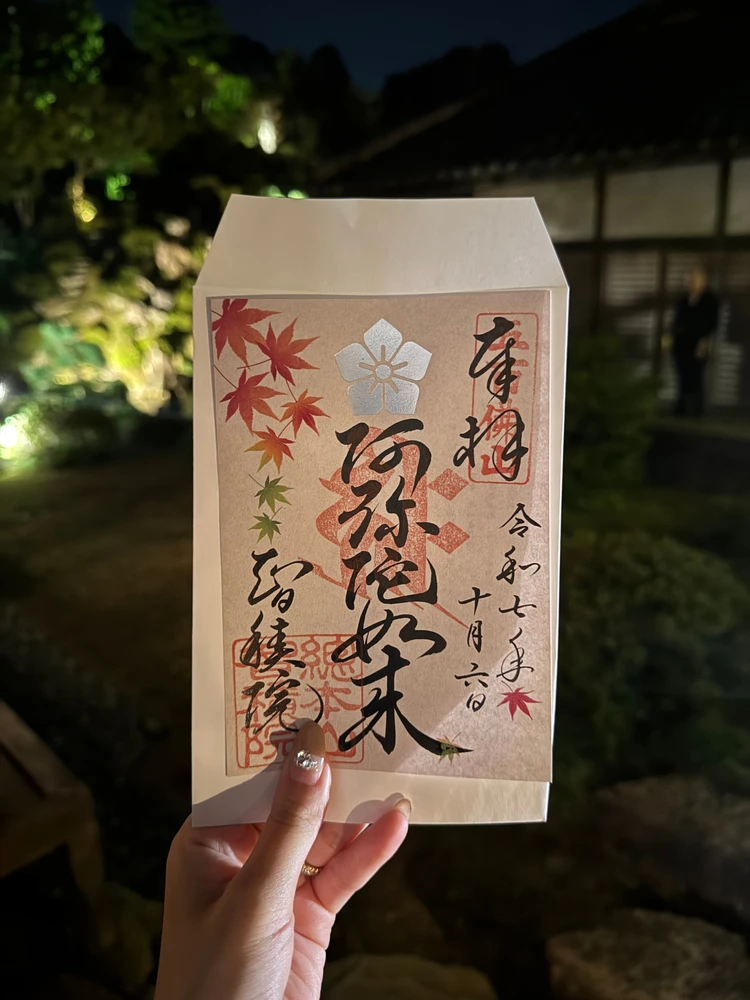 奉拝
五百佛山
令和七年
十月六日
阿弥陀如来
智積院
總本山
智積院